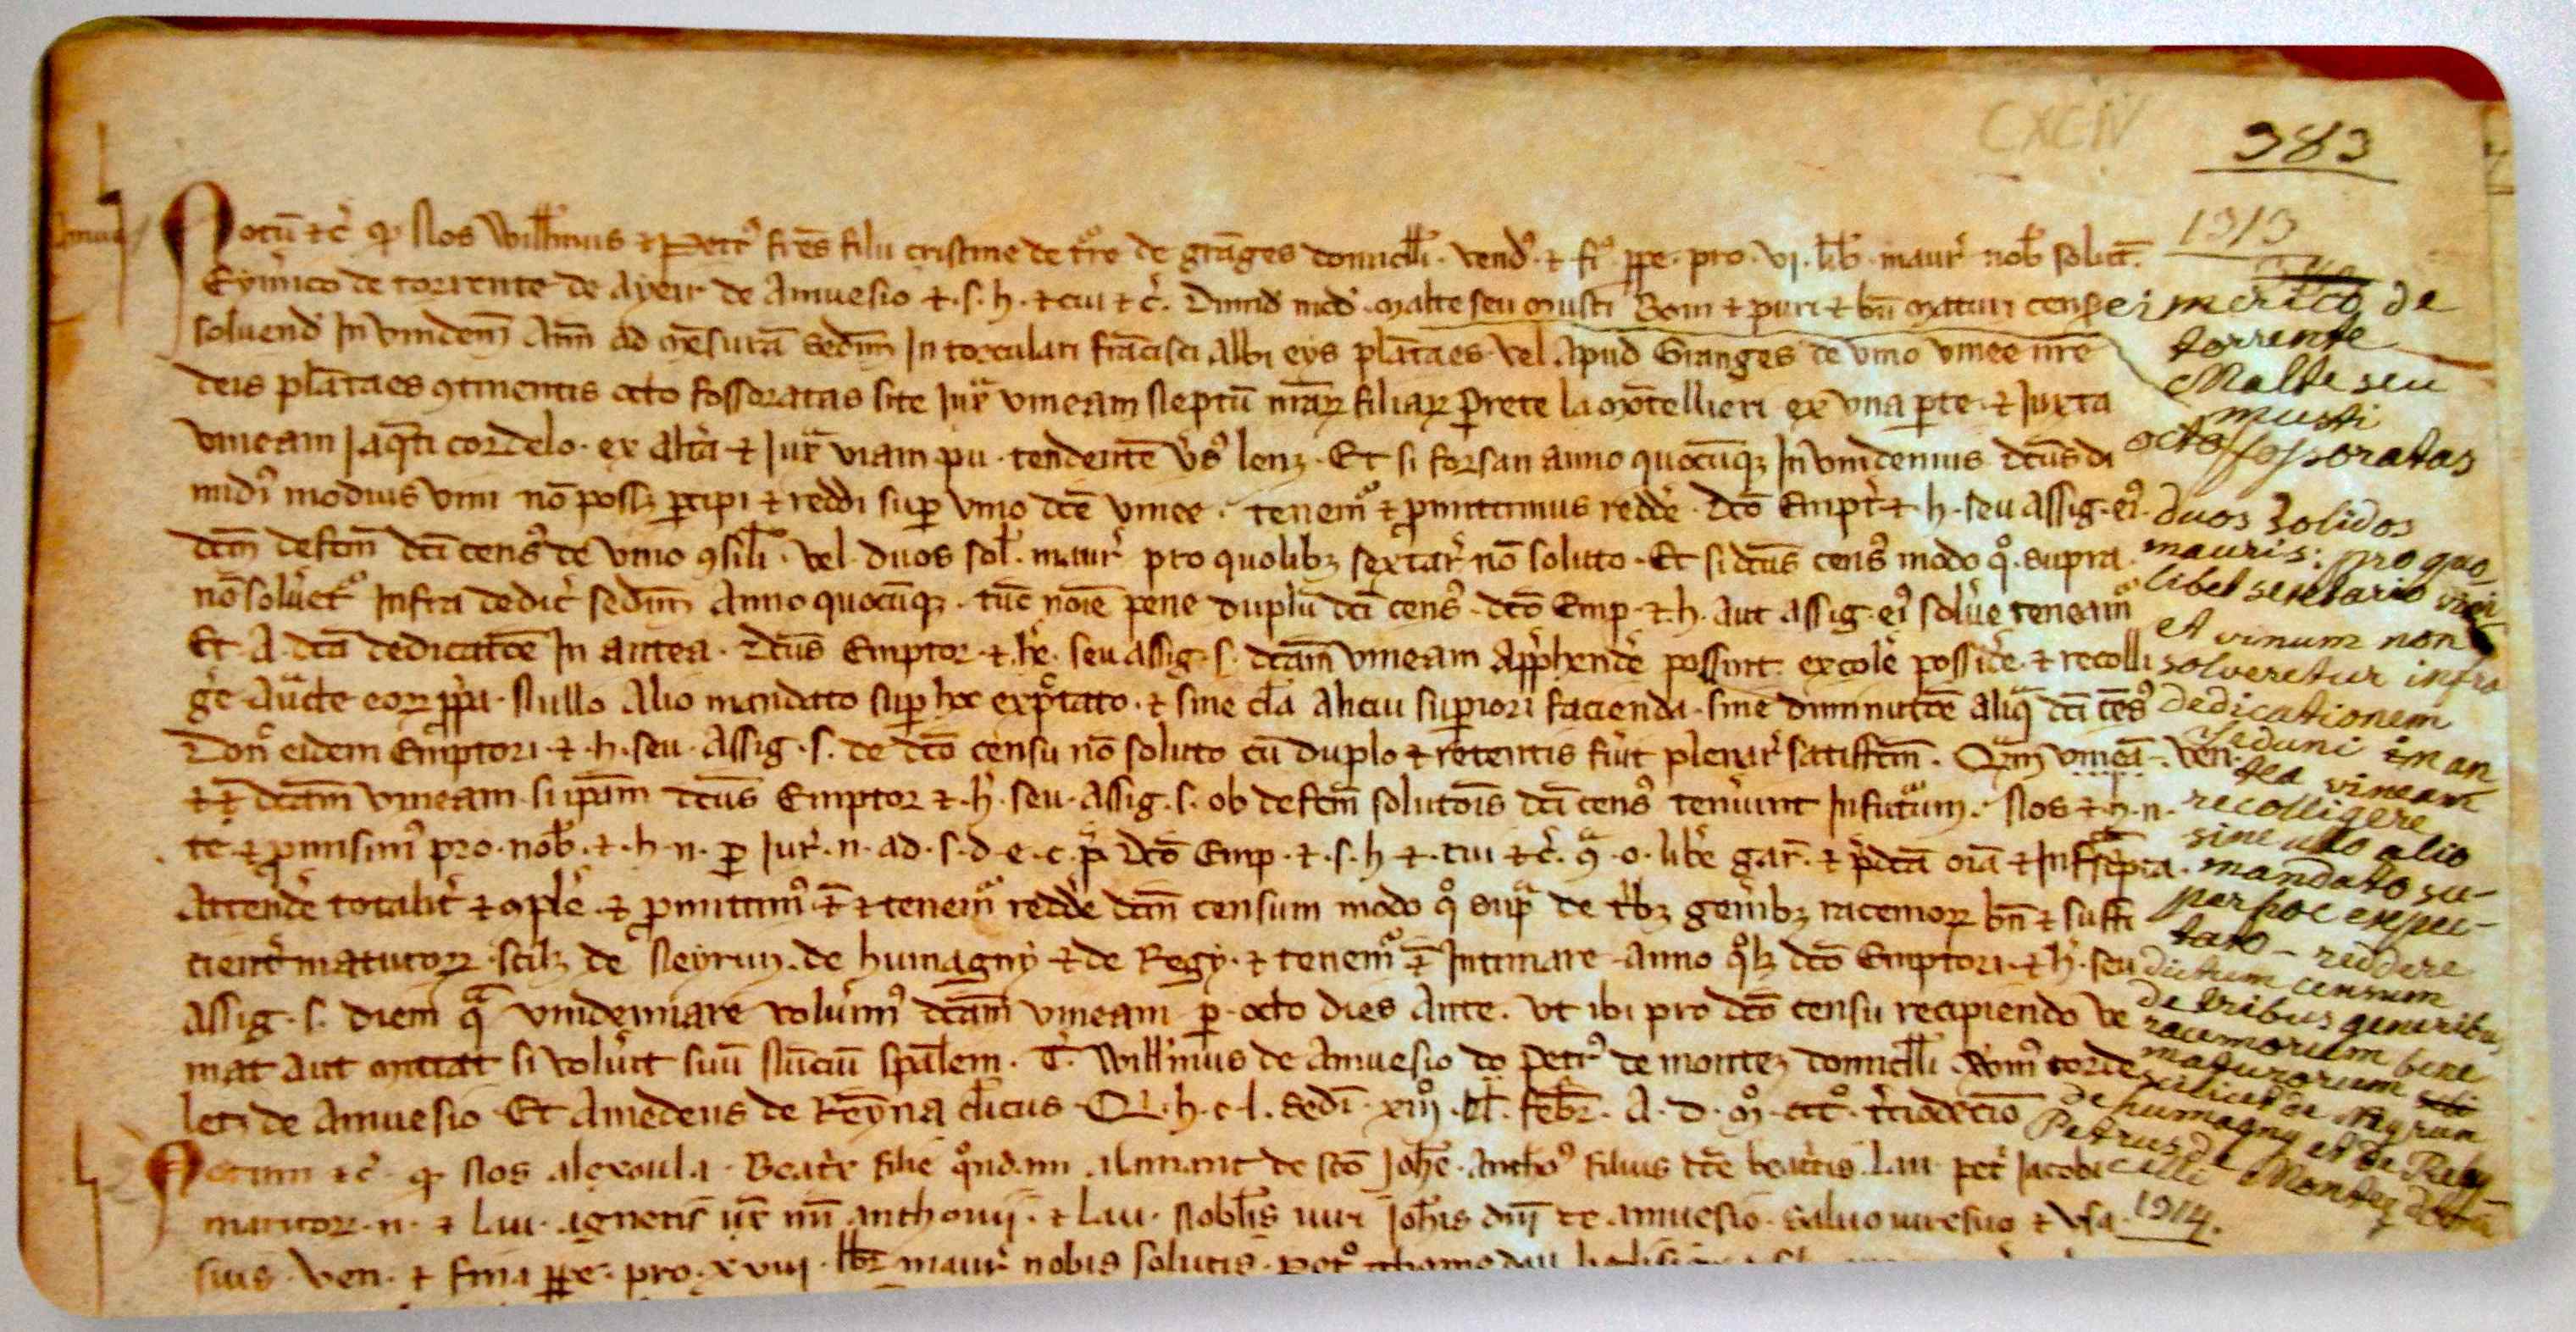 CXCIV
383
1313
Notū ⁊c̄ qͥ Nos Willm̄us ⁊ Petr᷒ frēs filii cristine de tr̄re de grāges domicll̄i · vend᷒ · ⁊ fi᷒ ꝑpe · pro · vj · lib̄ · maur̄ nob̄ solut̄ ·
Eym̄ico de torrente de Ayeir de Anivesio ⁊ · s · h · ⁊ cui ⁊ c̄ · Dimid mod · malte seu musti Boni ⁊ puri ⁊ bn̄ maturi cens᷒
solvend In vindem̄ Ann̄ ad mēsurā sedun̄ In torculari frācisci Albi eys plātaes vel Apud Granges de vino vinee nr̄e
deis plātaes ꝯtinentis octo fossoratas site Juxͣ vineam Neptū filiaꝝ Prete la mōtellieri ex una ꝑte · ⁊ Juxta
vineam Jaqͣti cordelo · ex altā ⁊ Juxͣ viam pu · tendentē v̄s᷒ lenz · Et si forsan anno quocūqꝫ In vindemiis dc̄us di
midi᷒ modius vini nō possꝫ ꝑcipi ⁊ reddi suꝑ vino dc̄e vinee · tenem᷒ ⁊ ꝓmittimus reddē · dc̄o Empt̄ ⁊ · h · seu Assig · ei᷒ ·
dc̄m defcm̄ dc̄i cens᷒ de vino ꝯsil̄i · vel · duos sol̄ · maur̄ pro quolibꝫ sextar̄ nō soluto · Et si dc̄us cens᷒ modo qͦ · supra ·
nō solv̄et᷒ Infra dedic̄ sedun̄ Anno quocūqꝫ · tūc noīe pene duplū dc̄i cens᷒ · dc̄o Emp · ⁊ · h · Aut Assig · ei᷒ solv̄e teneam᷒
Et · A · dc̄a dedicatōe In antea · dc̄us Emptor · ⁊ · h̄e · seu Assig · s · dc̄am vineam App̄hendē possunt excolē possidē · ⁊ recolli
gē · Auc̄te eoꝝ ꝓpͥa · Nullo Alio mandato suꝑ hoc expͨtato · ⁊ sine cl̄a Alicui suꝑiori facienda · sine diminutōe aliqͣ dc̄i cēs᷒
Don̄ eidem Emptori · ⁊ · h · seu · Assig · s · de dc̄o censu nō soluto cū duplo ⁊ retentis fūit plenar̄ satiffcm̄ · Qͣm vineā · ven ·
⁊ t̄ dc̄am vineam si ipam dc̄us Emptor ⁊ · h̄ · seu · Assig · s · ob defcm̄ solutōis dc̄i cens᷒ ten̄unt In futūm · Nos ⁊ · h · n ·
te · ⁊ ꝓmisim᷒ pro · nob̄ · ⁊ · h · n · ꝑ Jur̄ · n · ad · s · d · e · c · dc̄o Emp · ⁊ · s · h ⁊ · cui ⁊c̄ · · o · libe gar̄ · ⁊ p̄dcā oīa ⁊ Infrͣ sc̄pta ·
Attendē totalit̄ ⁊ ꝯplē · ⁊ ꝓmittim᷒ t̄ ⁊ tenem᷒ reddē dc̄m censum modo qͦ supͣ de tͥbꝫ gen̄ibꝫ racemoꝝ bn̄ ⁊ suffi
cient̄ maturoꝝ · scilꝫ de Neyrun · de humagny ⁊ de Regy · ⁊ tenem᷒ t̄ Intimare · anno qͦlꝫ dc̄o Emptori · ⁊ h̄ · seu
Assig · s · diem qͣ vindemiare voluīm᷒ dc̄am vineam ꝑ · octo dies Ante · ut ibi pro dc̄o censu recipiendo ve
niat aut mittat si volūit suū Nūciū spālem · T̄ · Will̄mus de Anivesio do Petr᷒ de montez domicll̄i · corde
leti de Anivesio · Et Amedeus de Reȳna cl̄icus · Q · h · c · l · sedī · xiiij · kl̄ · febr̄ · A · d · mͦ · cccͦ · t̄ciodeciō
Notum ⁊c̄ qͥ Nos alexoula · Beatr̄ filie qͦndam de scō Joh̄e · Antho᷒ filius dc̄e beatͥcis · lau · pet̄ Jacobi
maritoꝝ · n · ⁊ lau · agnetis ux̄ mī anthonij · ⁊ lau · Nobl̄is viri Joh̄is dn̄i de anivesio · salvo iure suo ⁊ usa ·
suis · ven · ⁊ finīa ꝑpe · pro · xviij · lbr̄ maur̄ nobis solutis ·
eimerico de
torrente
Malte seu
musti
octo fossoratas
duos Solidos
mauris: pro quo-
libet sextario
et vinum non
solveretur infra
dedicationem
Seduni in an
tea vineam
recolligere
sine ullo alio
mandato su-
per hoc expec-
tato – reddere
dictum censum
de tribus generibus
racemorum bene
maturorum
scilicet de Neyrun
de humagny et de Regy
Petrus de Montez
1314.